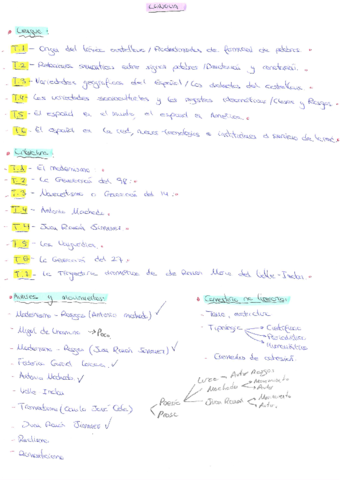 LENGUA
Lengua:
T.1 - Origen del léxico castellano / Procedimientos de formación de palabras
T.2 - Relaciones semánticas entre signos / Denotación y connotación.
T.3 - Variedades geográficas del Español / Los dialectos del castellano
T.4 - Las variedades socioculturales y los registros / Clases y Rasgos
T.5 - El español en el mundo, el español de América.
T.6 - El español en la red, nuevas tecnologías e instituciones al servicio de
Literatura:
T.1 - El modernismo
T.2 - La Generación del 98
T.3 - Novecentismo o Generación del 14
T.4 - Antonio Machado
T.4 - Juan Ramón Jiménez
T.5 - Las Vanguardias
T.6 - La Generación del 27
T.7 - La Trayectoria dramática de Ramón María del Valle-Inclán
Autores y movimientos:
- Modernismo - Rasgos (Antonio Machado) ✓
- Miguel de Unamuno →
- Modernismo - Rasgos (Juan Ramón Jiménez) ✓
- Federico García Lorca ✓
- Antonio Machado ✓
- Valle Inclán
- Tremendismo (Camilo José Cela)
- Juan Ramón Jiménez ✓
- Realismo
- Renacentismo
Comentario no literario:
- Tema, estructura
- Tipología
Científicos
Periodísticos
Humanísticos
- Comentario de cohesión
Poesía
Prosa
Lorca - Autor Rasgos
Machado
Movimiento
Autor
Juan Ramón
Movimiento
Autor